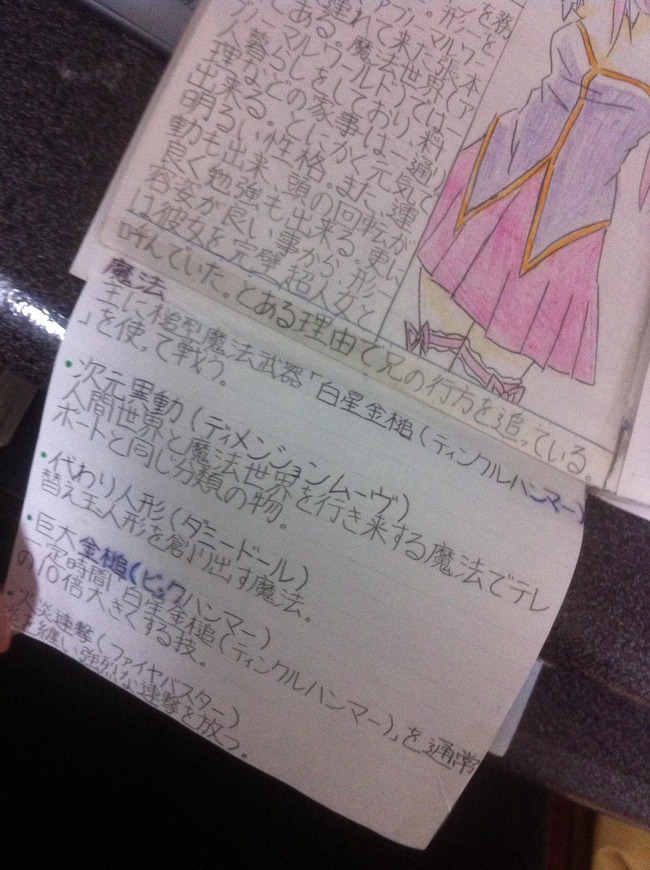 を務
連れて来た張本
人である。魔法世界(ア
ニマルワールド)では一
人暮らしをしており、料
理などの家事は一通り
出来る。とにかく元気で
明るい性格。また、運
動も出来、頭の回転が
良く勉強も出来る。更に
容姿が良い事から、形一
は彼女を完璧超人女と
呼んでいた。とある理由で兄の行方を追っている。
魔法
主に槌型魔法武器「白星金槌(ティンクルハンマー)
」を使って戦う。
・次元異動(ディメンションムーヴ)
人間世界と魔法世界を行き来する魔法でテレ
ポートと同じ分類の物。
・代わり人形(ダミードール)
替え玉人形を創り出す魔法。
・巨大金槌(ビックハンマー)
一定時間「白星金槌(ティンクルハンマー)」を通常
の10倍大きくする技。
・火炎連撃(ファイヤバスター)
を纏い強烈な連撃を放つ。